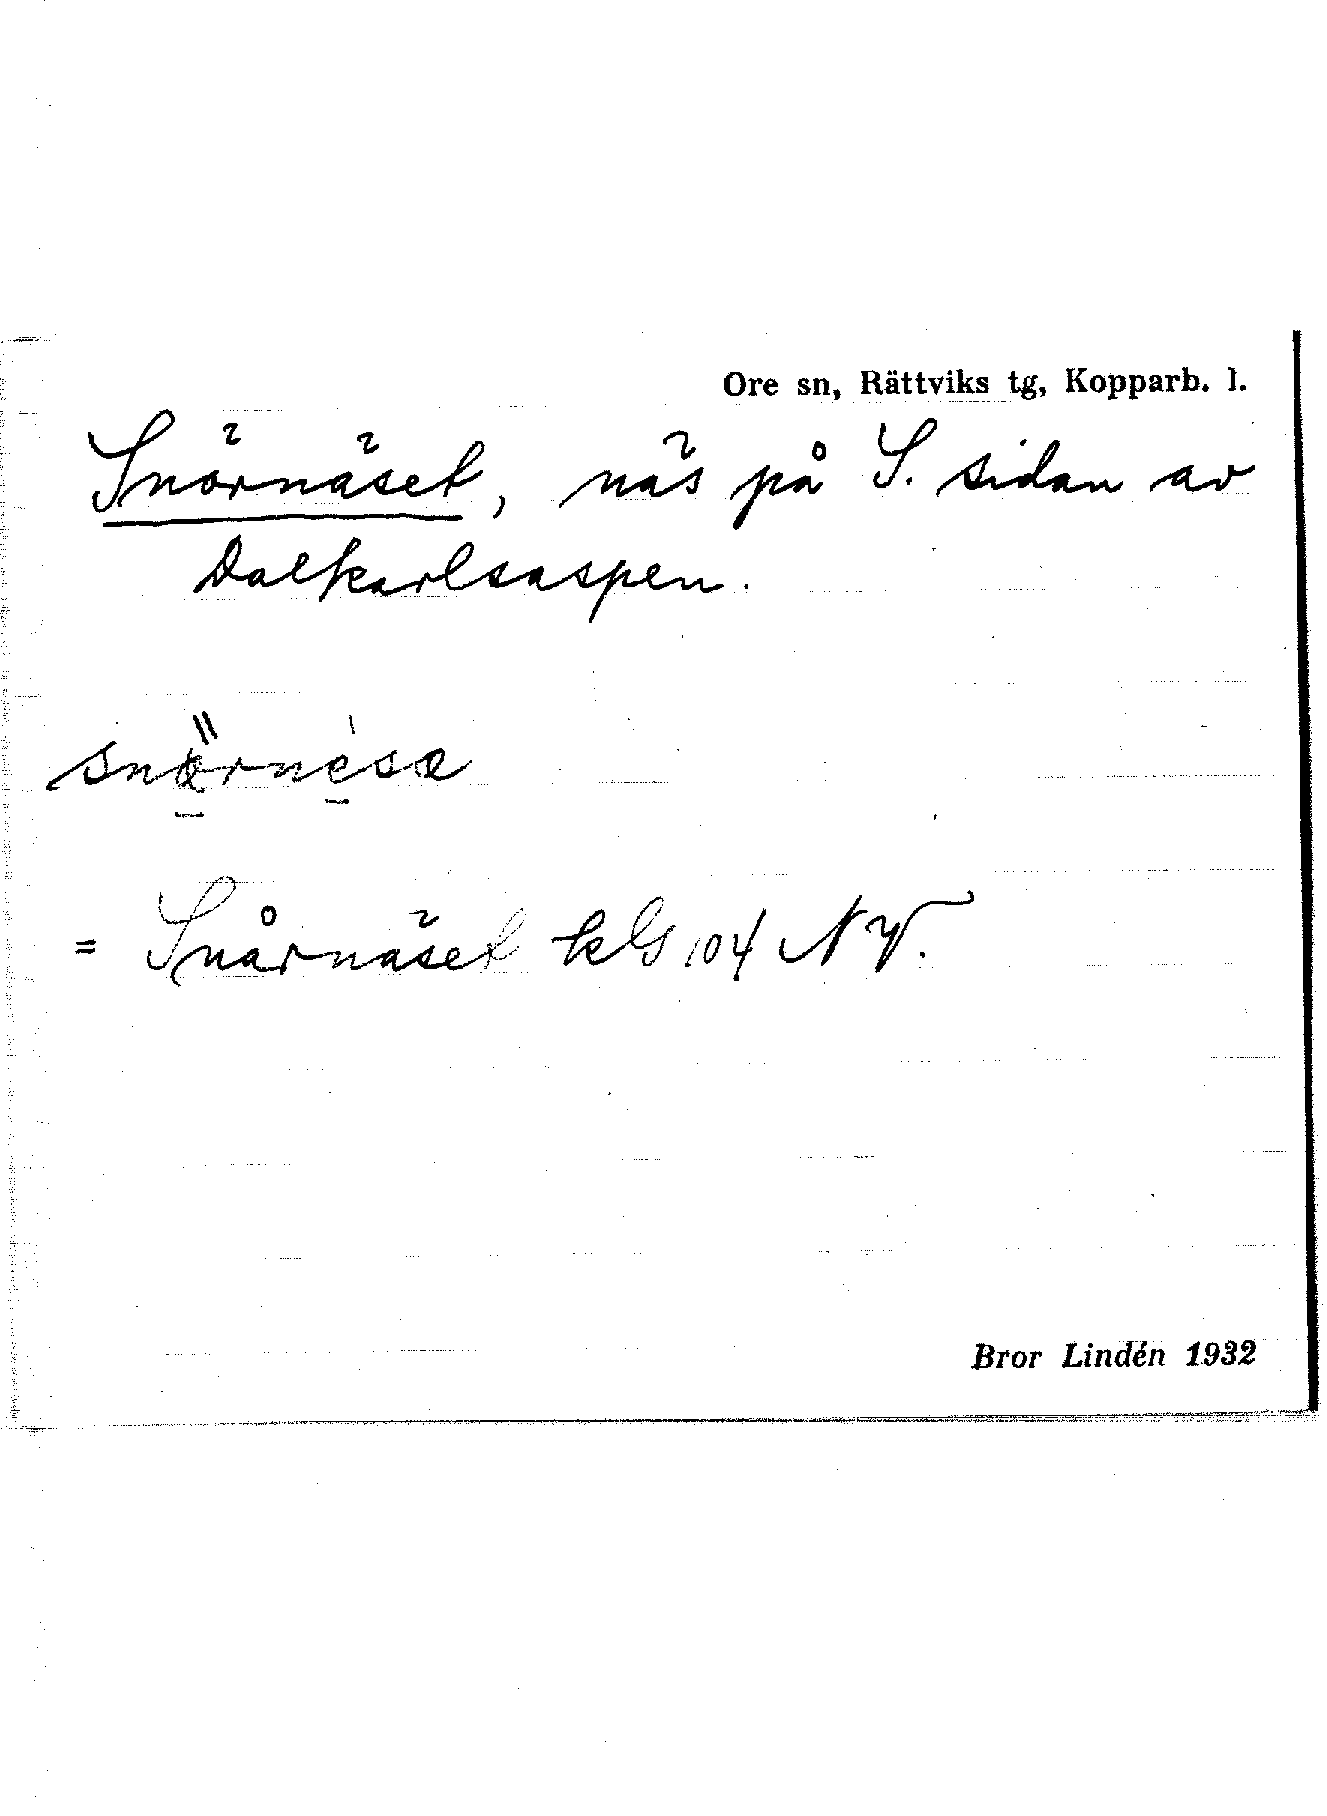 Ore sn, Rättviks tg, Kopparb. l.
Snörnäset, näs på S. sidan av
Dalkarlsaspen.
= Snårnäset kbl 104 NV.
Bror Lindén 1932